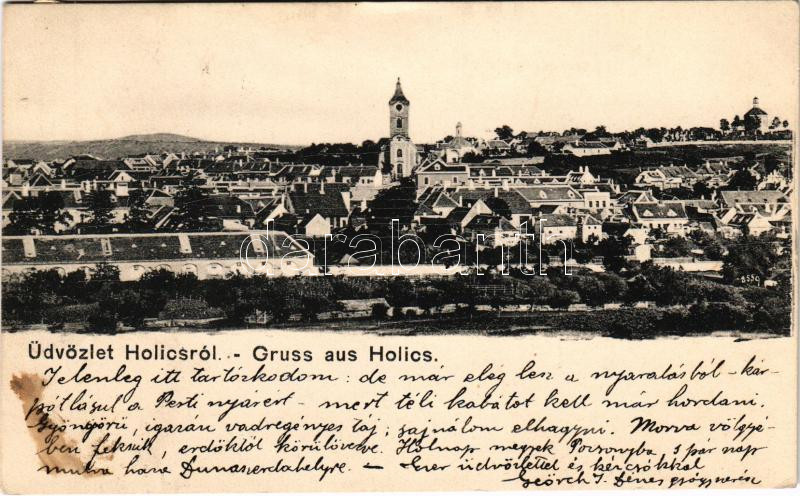 8550
© darabanth
Üdvözlet Holicsról. - Gruss aus Holics.
Jelenleg itt tartózkodom: de már elég lesz a nyaralásból - kár-
pótlásul a Pesti nyárért - mert téli kabátot kell már hordani.
Gyönyörű, igazán vadregényes táj, sajnálom elhagyni. Morva völgyé-
ben fekszik, erdőktől körülövezve. Holnap megyek Pozsonyba s pár nap
mulva haza Dunaszerdahelyre. - Ezer üdvözlettel és kézcsókkal
Geörch J. Dénes gyógyszerész